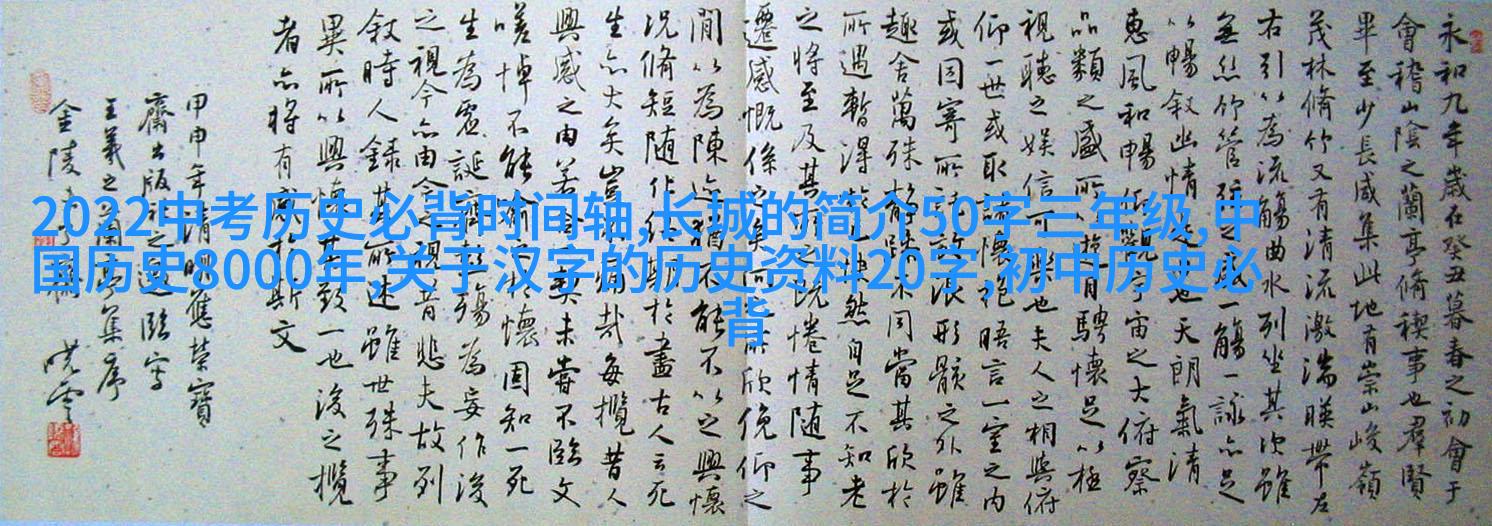 2022中考历史必背时间轴,长城的简介50字三年级,中
国历史8000年,关于汉字的历史资料20字,初中历史必
背
永和九年歲在癸丑暮春之初會于
會稽山陰之蘭亭脩禊事也羣賢
畢至少長咸集此地有崇山峻嶺
茂林脩竹又有清流激湍暎帶左
右引以為流觴曲水列坐其次雖
無絲竹管弦之盛一觴一詠亦足
以暢敘幽情是日也天朗氣清
惠風和暢仰觀宇宙之大俯察
品類之盛所以遊目騁懷足以極
視聽之娛信可樂也夫人之相與俯
仰一世或取諸懷抱晤言一室之內
或因寄所託放浪形骸之外雖
趣舍萬殊靜躁不同當其欣於
所遇暫得於己快然自足不知老
之將至及其所之既惓情隨事
遷感慨係之矣向之所欣俛仰之
間以為陳迹猶不能不以之興懷
況脩短隨化終期於盡古人云死
生亦大矣豈不痛哉每攬昔人
興感之由若合一契未嘗不臨文
嗟悼不能喻之於懷固知一死
生為虛誕齊彭殤為妄作後
之視今亦由今之視昔悲夫故列
敘時人錄其所述雖世殊事
異所以興懷其致一也後之攬
者亦將有感於斯文
甲申年清明應榮寶
齋出版社之邀臨寫
王羲之蘭亭集序
金陵